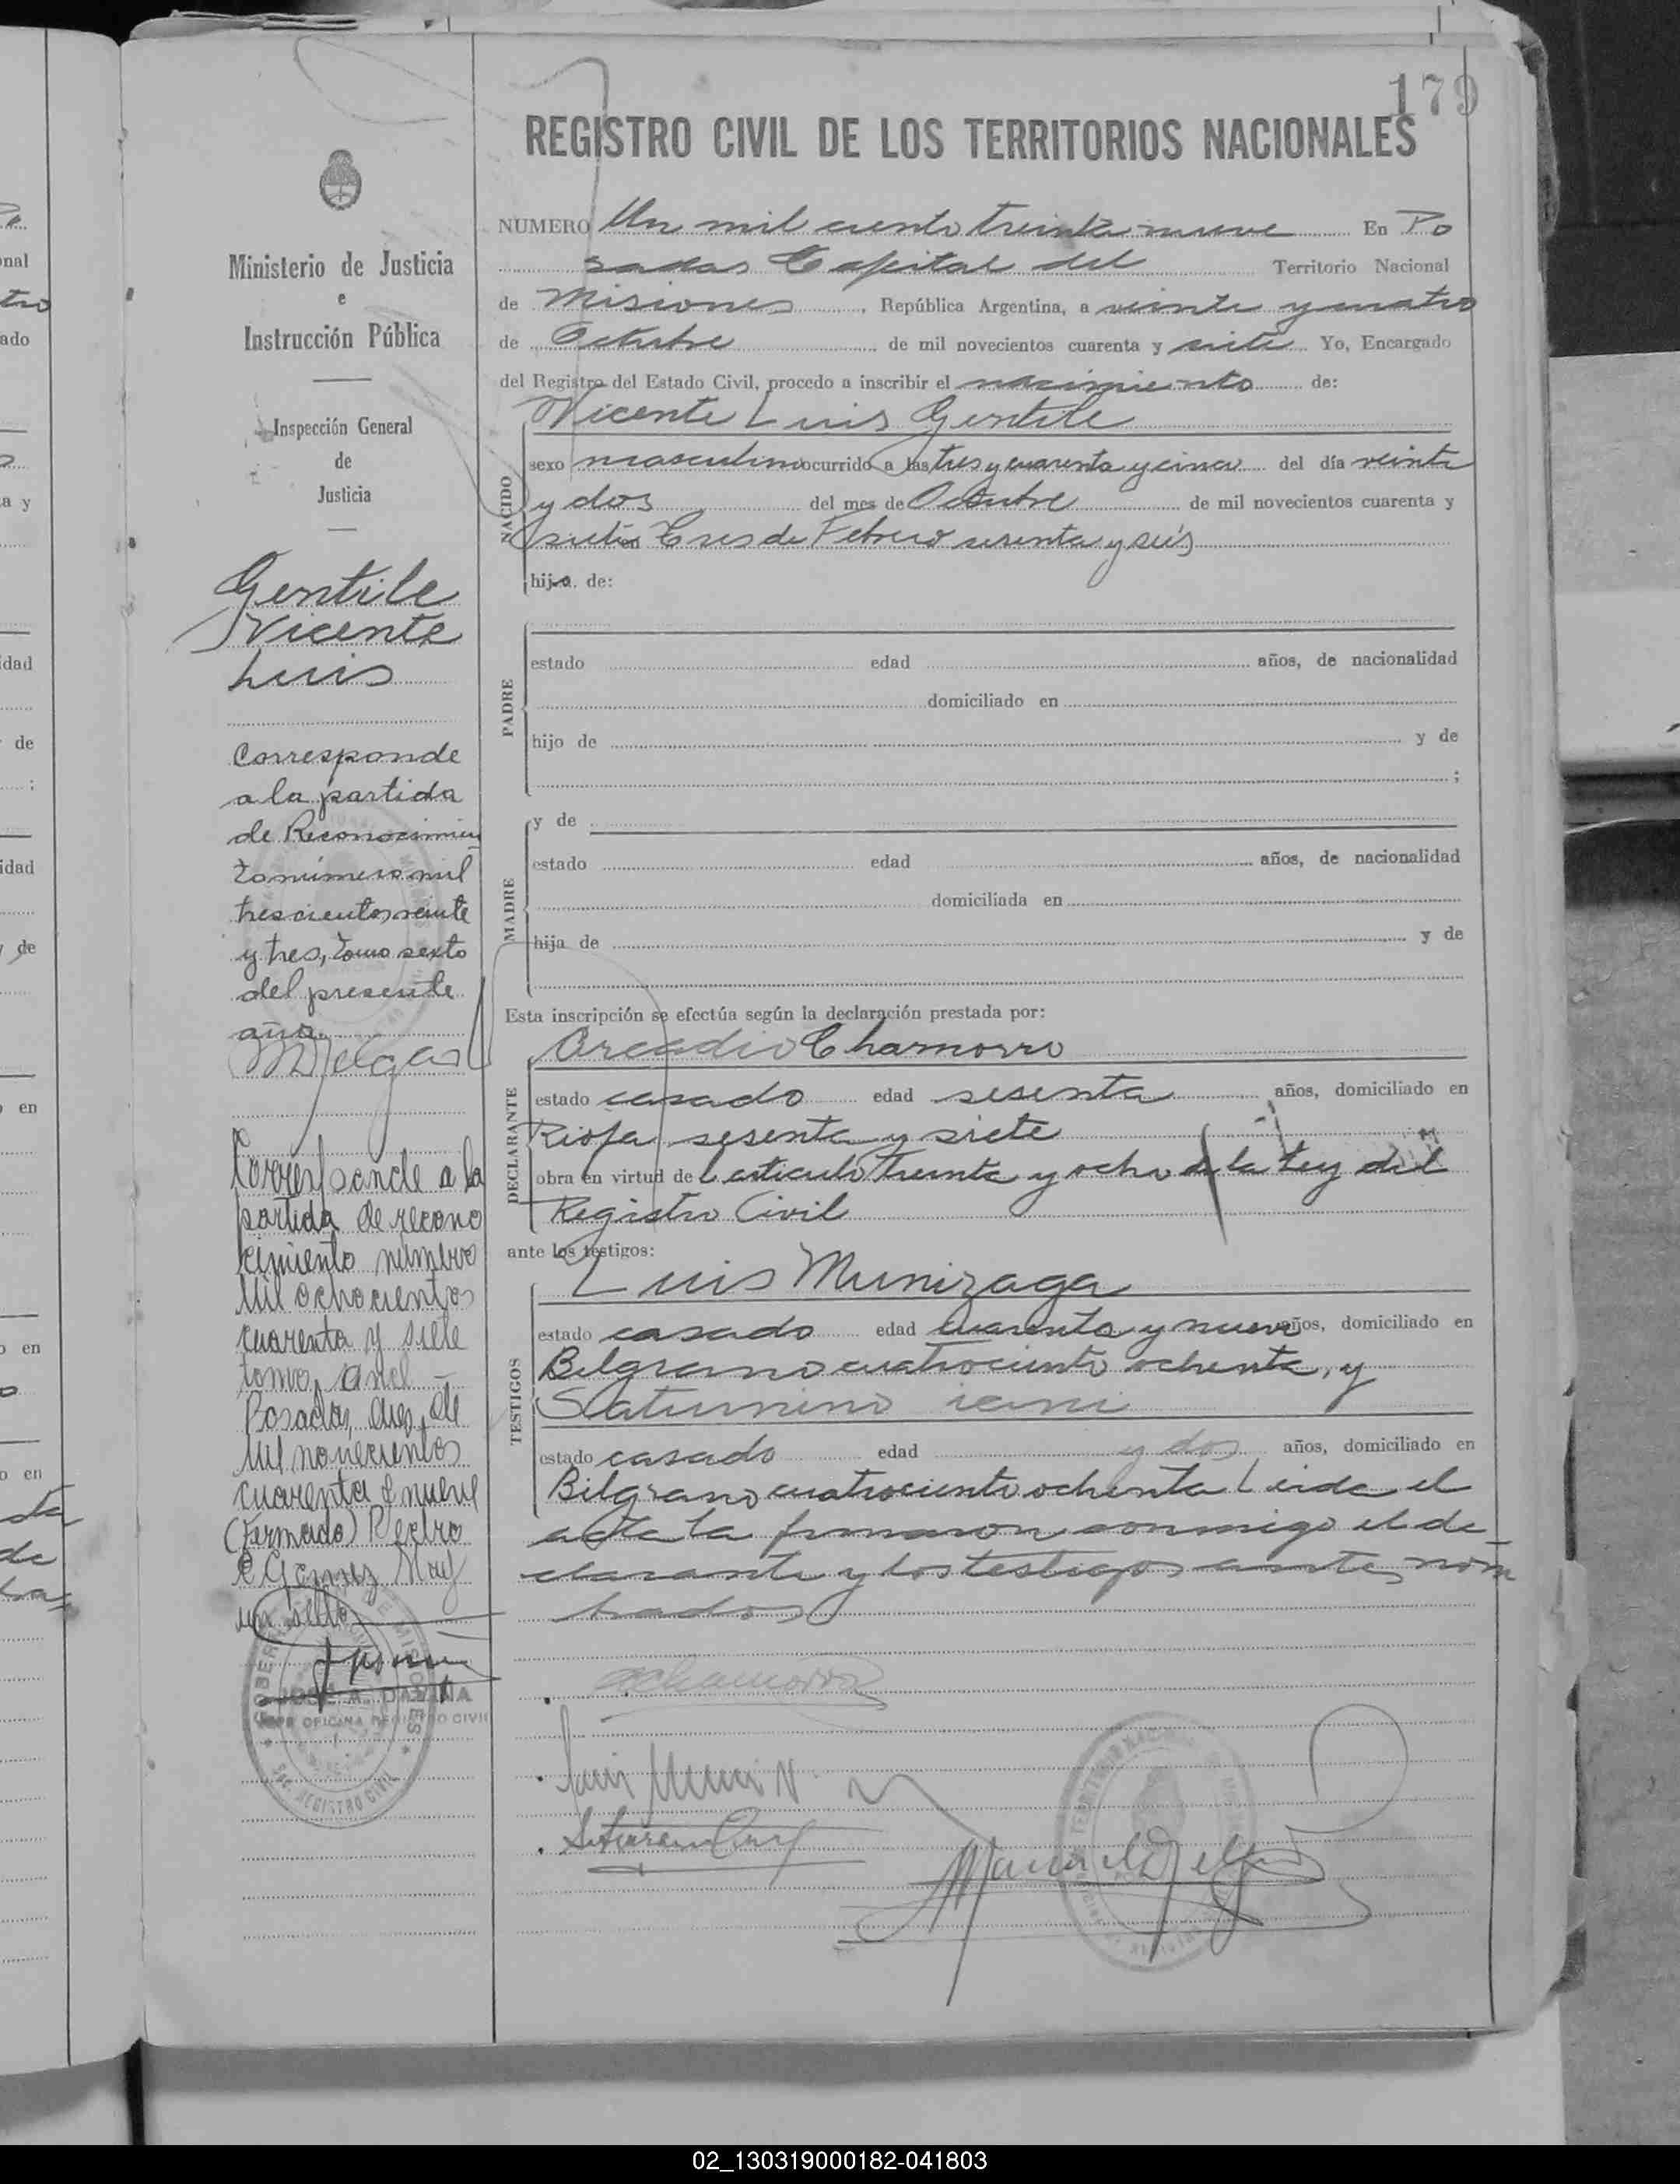 179
REGISTRO CIVIL DE LOS TERRITORIOS NACIONALES
Ministerio de Justicia
e
Instrucción Pública
Inspección General
de
Justicia
Gentile
Vicente
Luis
Corresponde
a la partida
de Reconocimien
to número mil
trescientos veinte
y tres, tomo sexto
del presente
año.
Corresponde a la
partida de recono
cimiento número
mil ochocientos
cuarenta y siete
tomo
Posadas, de
mil novecientos
cuarenta y nueve
(Firmado) Pedro
Gómez
un sello
JOSE A.
JEFE OFICINA REGISTRO CIVIL
NUMERO Un mil ciento treinta nueve En Po
sadas Capital del Territorio Nacional
de Misiones, República Argentina, a veinte y cuatro
de Octubre de mil novecientos cuarenta y siete Yo, Encargado
del Registro del Estado Civil, procedo a inscribir el nacimiento de:
Vicente Luis Gentile
NACIDO
sexo masculino ocurrido a las tres y cuarenta y cinco del día veinte
y dos del mes de Octubre de mil novecientos cuarenta y
siete en Tres de Febrero sesenta y seis
hijo de:
PADRE
estado edad años, de nacionalidad
domiciliado en
hijo de y de
;
MADRE
y de
estado edad años, de nacionalidad
domiciliada en
hija de y de
Esta inscripción se efectúa según la declaración prestada por:
DECLARANTE
Arcadio Chamorro
estado casado edad sesenta años, domiciliado en
Rioja sesenta y siete
obra en virtud del articulo treinta y ocho de la Ley del
Registro Civil
ante los testigos:
TESTIGOS
Luis Munizaga
estado casado edad cuarenta y nueve años, domiciliado en
Belgrano cuatrociento ochenta, y
Saturnino
estado casado edad y dos años, domiciliado en
Belgrano cuatrociento ochenta Leida el
acta la firmaron conmigo el de
clarante y los testigos antes nom
brados
achamorro
02_130319000182-041803